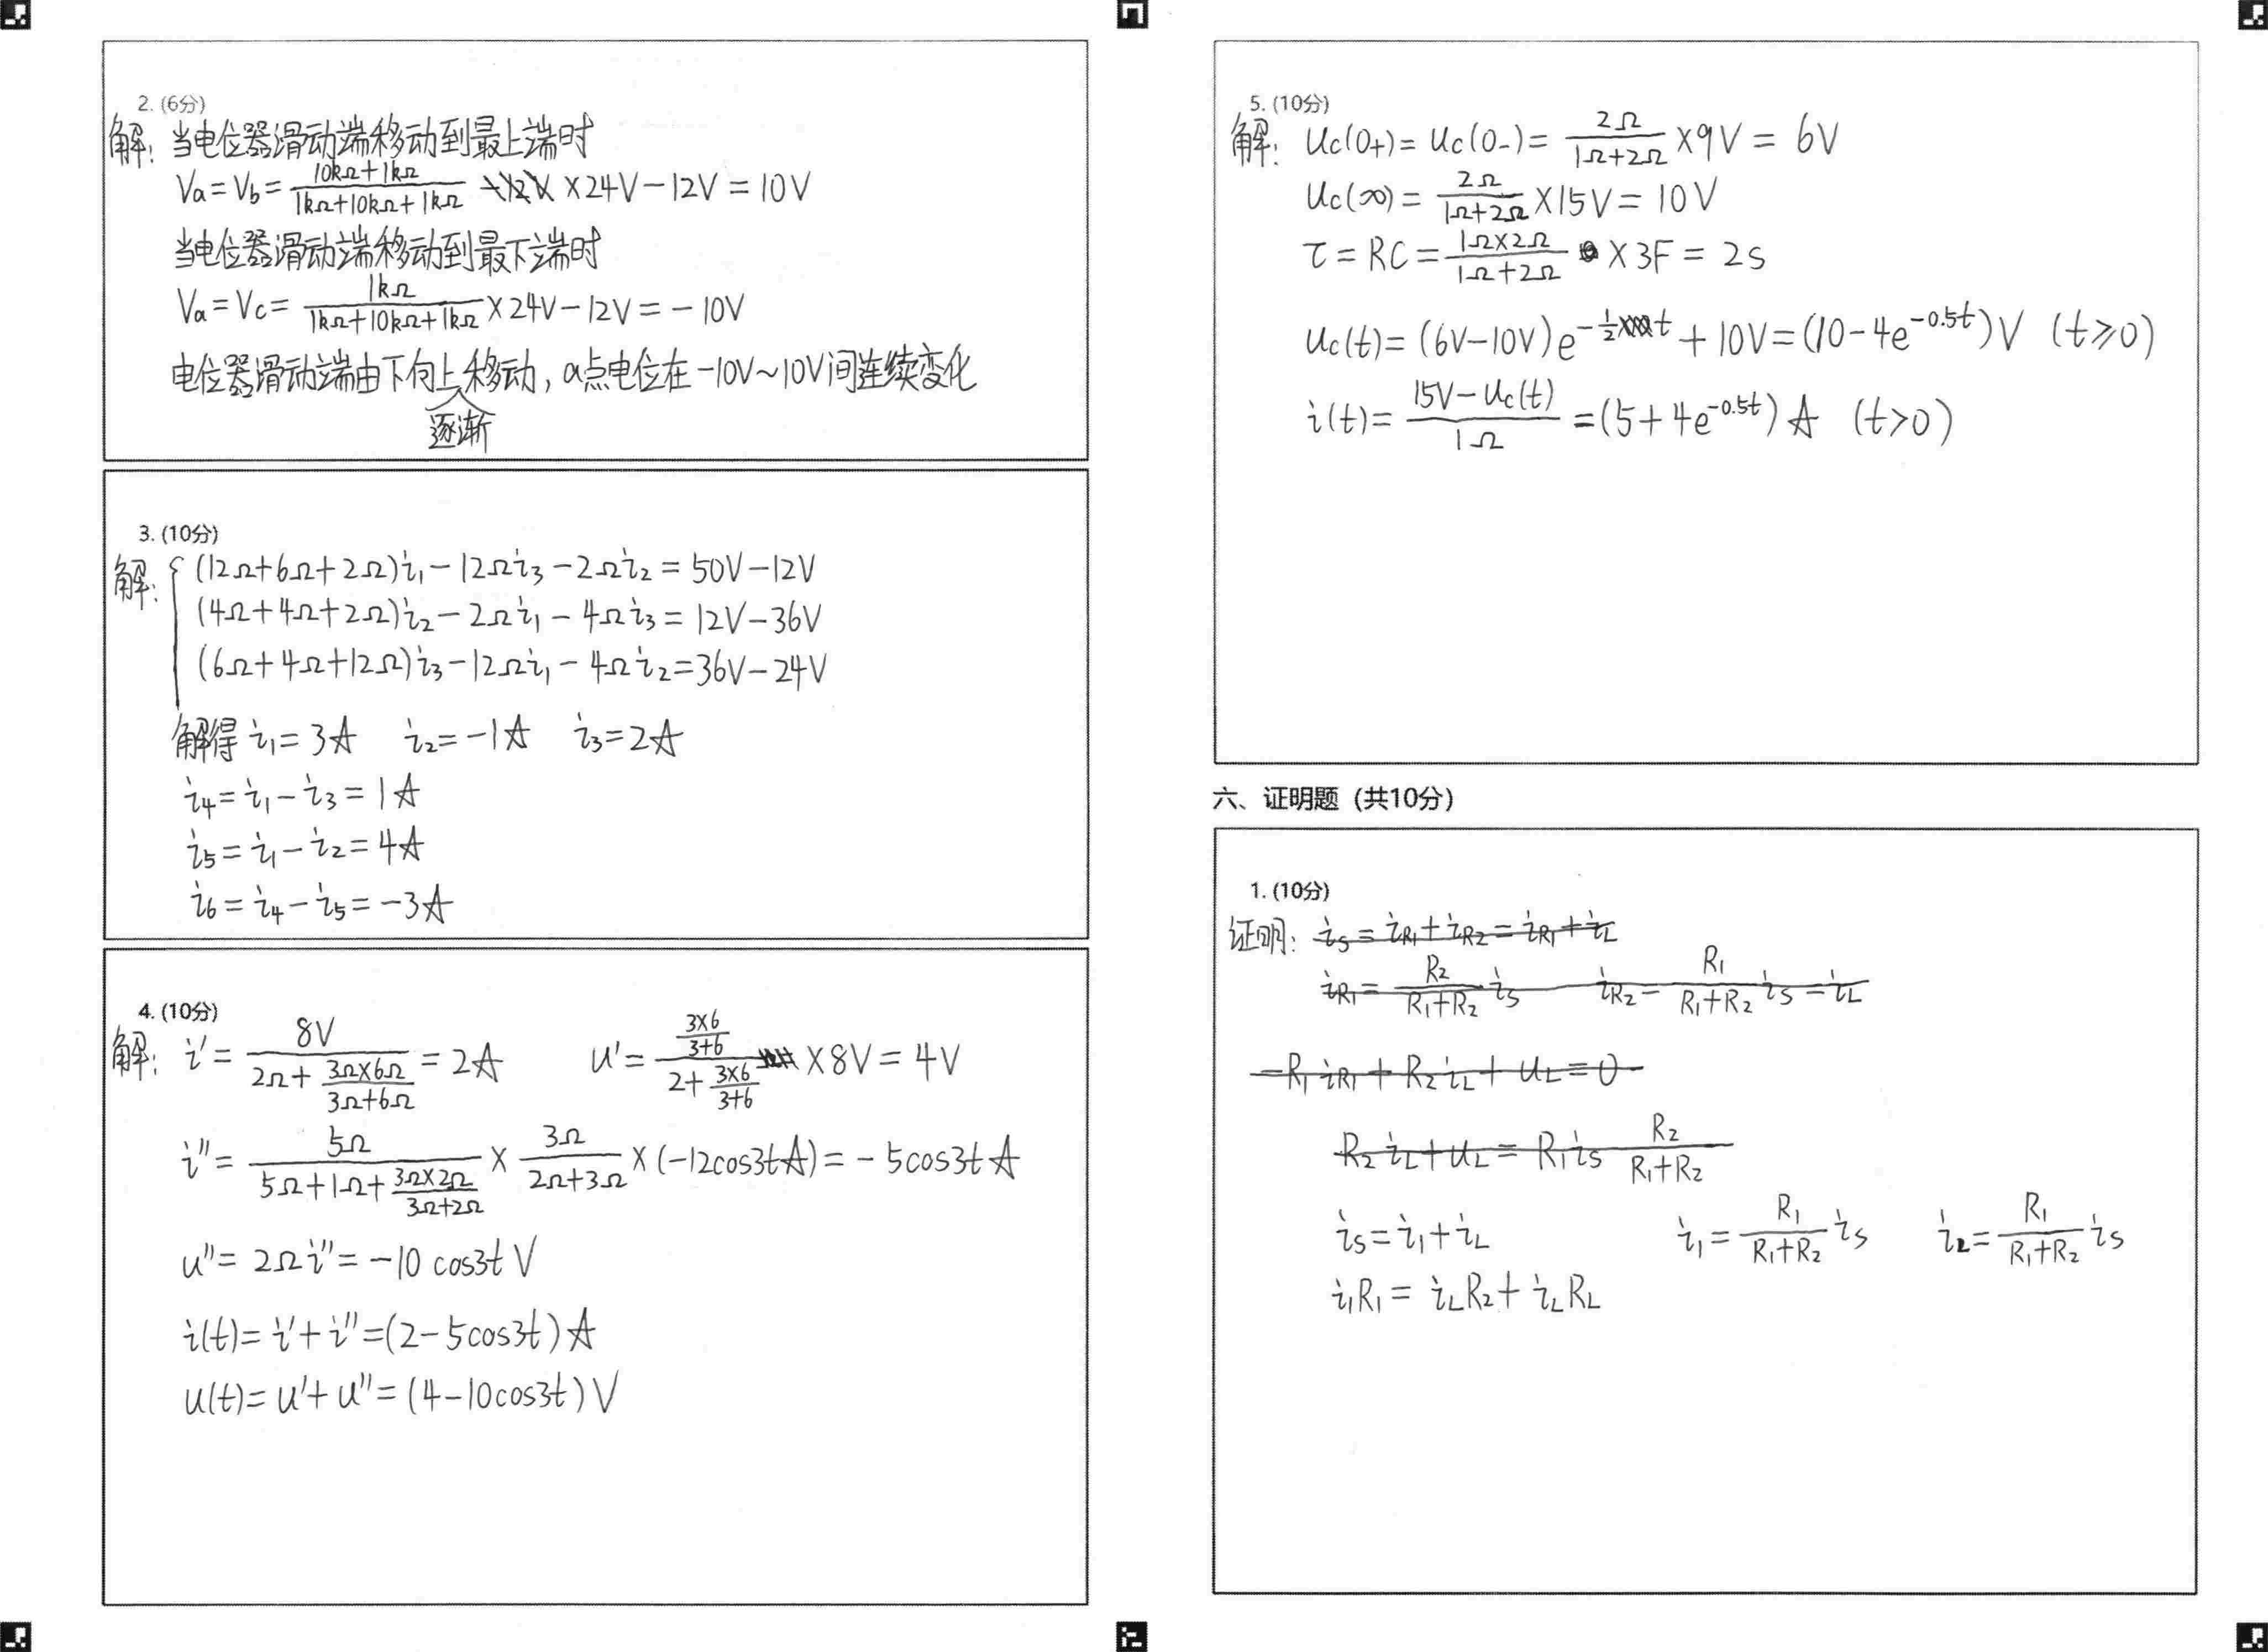 2. (6分)
解: 当电位器滑动端移动到最上端时
Va=Vb= (10kΩ+1kΩ)/(1kΩ+10kΩ+1kΩ) ×24V-12V=10V
当电位器滑动端移动到最下端时
Va=Vc= 1kΩ/(1kΩ+10kΩ+1kΩ) ×24V-12V=-10V
电位器滑动端由下向上逐渐移动, a点电位在-10V~10V间连续变化
3. (10分)
解: { (12Ω+6Ω+2Ω)i₁-12Ωi₃-2Ωi₂=50V-12V
(4Ω+4Ω+2Ω)i₂-2Ωi₁-4Ωi₃=12V-36V
(6Ω+4Ω+12Ω)i₃-12Ωi₁-4Ωi₂=36V-24V
解得 i₁=3A i₂=-1A i₃=2A
i₄=i₁-i₃=1A
i₅=i₁-i₂=4A
i₆=i₄-i₅=-3A
4. (10分)
解: i′= 8V/(2Ω+(3Ω×6Ω)/(3Ω+6Ω)) =2A u′= ((3×6)/(3+6))/(2+(3×6)/(3+6)) ×8V=4V
i″= 5Ω/(5Ω+1Ω+(3Ω×2Ω)/(3Ω+2Ω)) × 3Ω/(2Ω+3Ω) ×(-12cos3tA)=-5cos3tA
u″=2Ωi″=-10cos3tV
i(t)=i′+i″=(2-5cos3t)A
u(t)=u′+u″=(4-10cos3t)V
5. (10分)
解: uc(0+)=uc(0-)= 2Ω/(1Ω+2Ω) ×9V=6V
uc(∞)= 2Ω/(1Ω+2Ω) ×15V=10V
τ=RC= (1Ω×2Ω)/(1Ω+2Ω) ×3F=2s
uc(t)=(6V-10V)e^(-½t)+10V=(10-4e^(-0.5t))V (t≥0)
i(t)= (15V-uc(t))/1Ω =(5+4e^(-0.5t))A (t>0)
六、证明题 (共10分)
1. (10分)
证明: iS=iR1+iR2=iR1+iL
iR1= R₂/(R₁+R₂) iS iR2= R₁/(R₁+R₂) iS=iL
-R₁iR1+R₂iL+uL=0
R₂iL+uL=R₁iS R₂/(R₁+R₂)
iS=i₁+iL i₁= R₁/(R₁+R₂) iS i₂= R₁/(R₁+R₂) iS
i₁R₁=iLR₂+iLRL